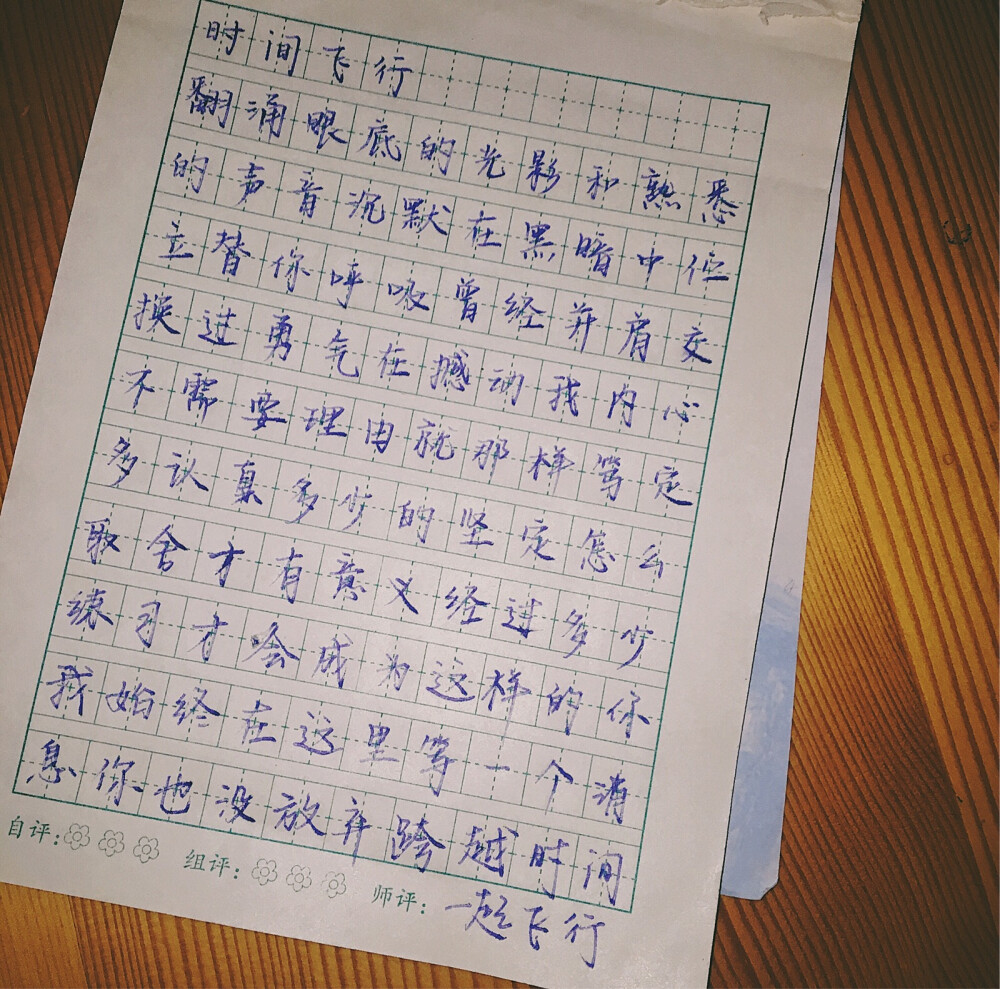 时间飞行
翻涌眼底的光影和熟悉
的声音沉默在黑暗中伫
立替你呼吸曾经并肩交
换过勇气在撼动我内心
不需要理由就那样笃定
多认真多少的坚定怎么
取舍才有意义经过多少
练习才会成为这样的你
我始终在这里等一个消
息你也没放弃跨越时间
自评：
组评：
师评：
一起飞行